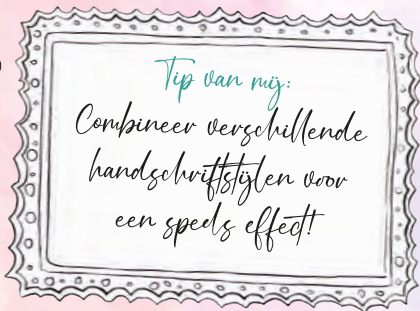 Tip van mij:
Combineer verschillende
handschriftstijlen voor
een speels effect!